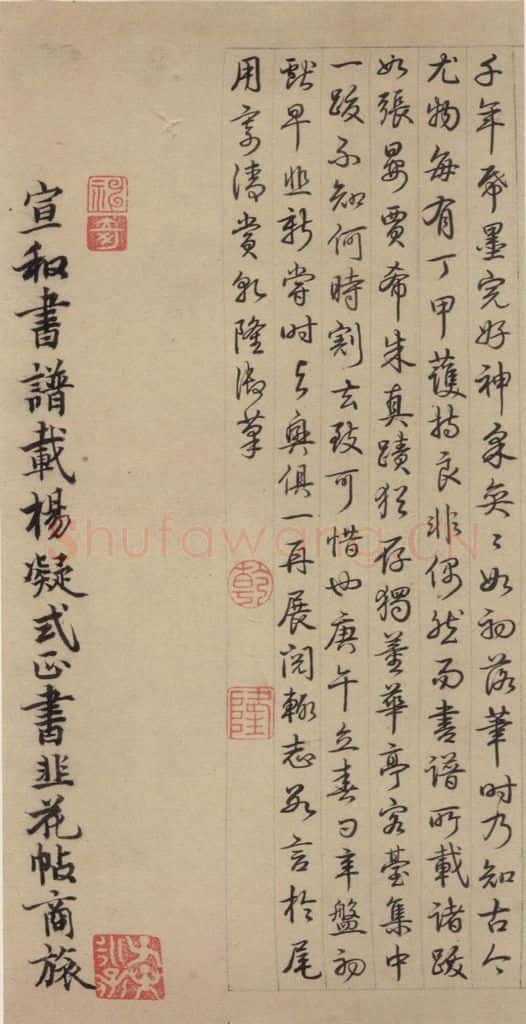 千年帋墨完好神采奕〻如初落筆时乃知古今
尤物每有丁甲護持良非偶然而書譜所載諸跋
如張晏賈希朱真蹟猶存獨董華亭容臺集中
一跋不知何時割去致可惜也庚午立春日辛盤初
獻早韭新嘗时与興俱一再展閱輒志數言於尾
用寄清賞乾隆御筆
乾
隆
宣和書譜載楊凝式正書韭花帖商旅
Shufawang.CN